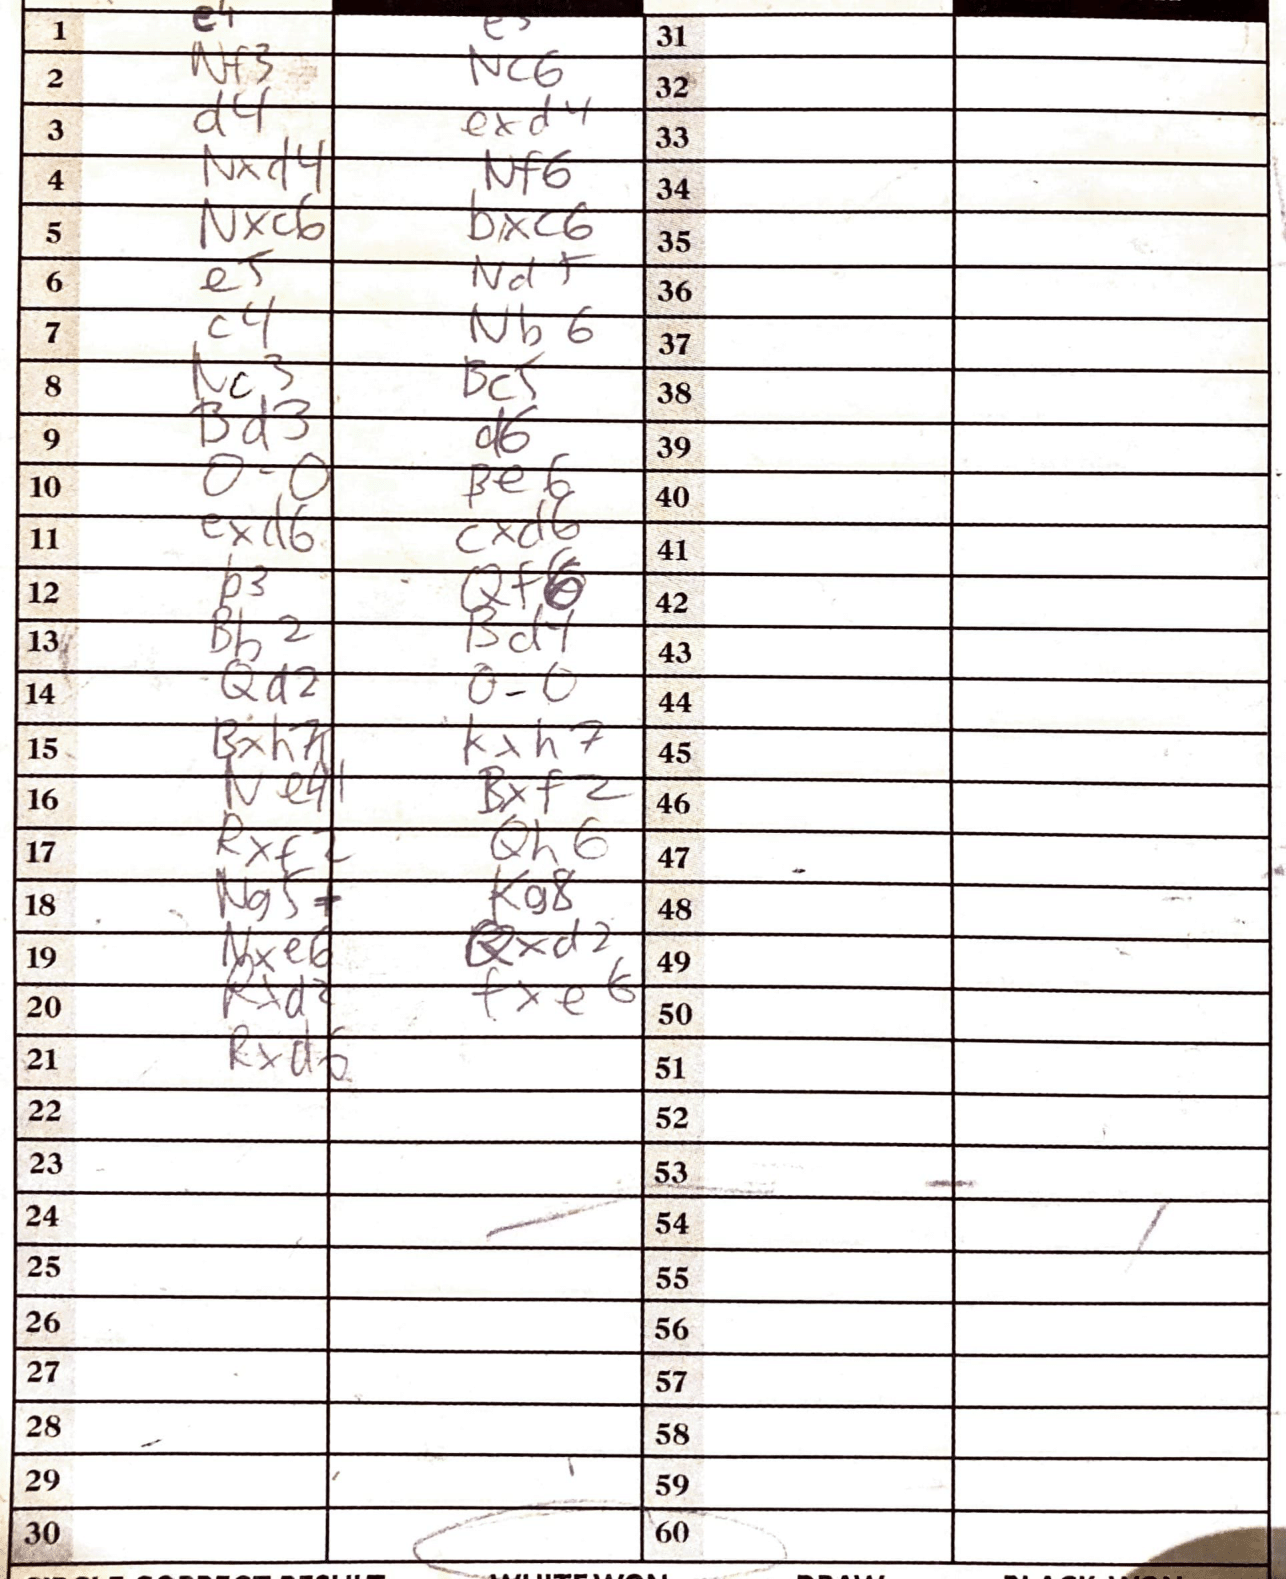 1 e4 e5 31
2 Nf3 Nc6 32
3 d4 exd4 33
4 Nxd4 Nf6 34
5 Nxc6 bxc6 35
6 e5 Nd5 36
7 c4 Nb6 37
8 Nc3 Bc5 38
9 Bd3 d6 39
10 O-O Be6 40
11 exd6 cxd6 41
12 b3 Qf6 42
13 Bb2 Bd4 43
14 Qd2 O-O 44
15 Bxh7+ Kxh7 45
16 Ne4! Bxf2 46
17 Rxf2 Qh6 47
18 Ng5+ Kg8 48
19 Nxe6 Qxd2 49
20 Rxd2 fxe6 50
21 Rxd6 51
22 52
23 53
24 54
25 55
26 56
27 57
28 58
29 59
30 60
CIRCLE CORRECT RESULT WHITE WON DRAW BLACK WON